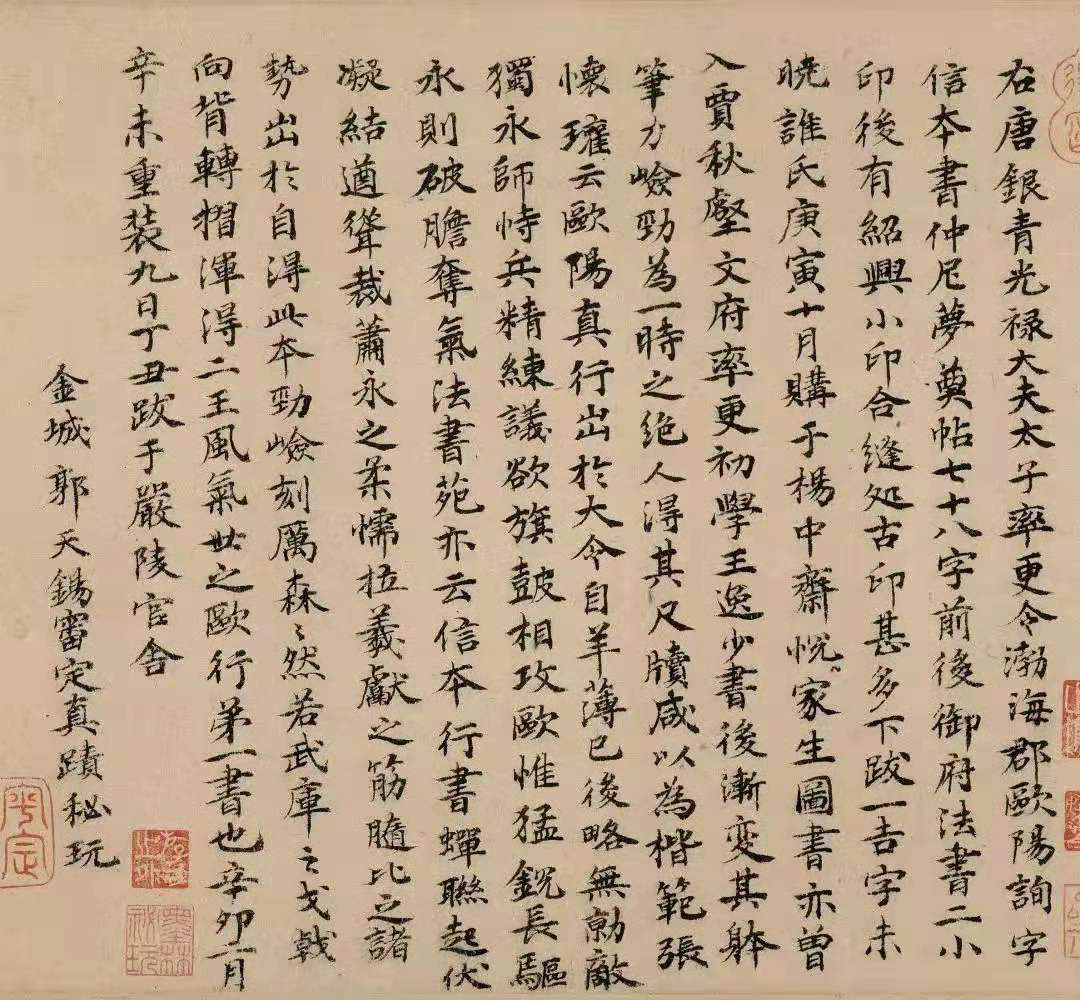 右唐銀青光禄大夫太子率更令渤海郡歐陽詢字
信本書仲尼夢奠帖七十八字前後御府法書二小
印後有紹興小印合縫処古印甚多下跋一吉字未
曉誰氏庚寅十月購于楊中齋悦家生圖書亦曾
入賈秋壑文府率更初學王逸少書後漸變其躰
筆力嶮勁為一時之絶人淂其尺牘咸以為楷範張
懷瓘云歐陽真行出於大令自羊薄已後略無勍敵
獨永師恃兵精練議欲旗鼓相攻歐惟猛鋭長驅
永則破膽奪氣法書苑亦云信本行書蟬聯起伏
凝結遒聳裁蕭永之柔懦拉羲獻之筋髓比之諸
勢出於自得此本勁嶮刻厲森〻然若武庫之戈戟
向背轉摺渾淂二王風氣世之歐行第一書也辛卯二月
辛未重装九日丁丑跋于嚴陵官舎
金城郭天錫審定真蹟秘玩
平定